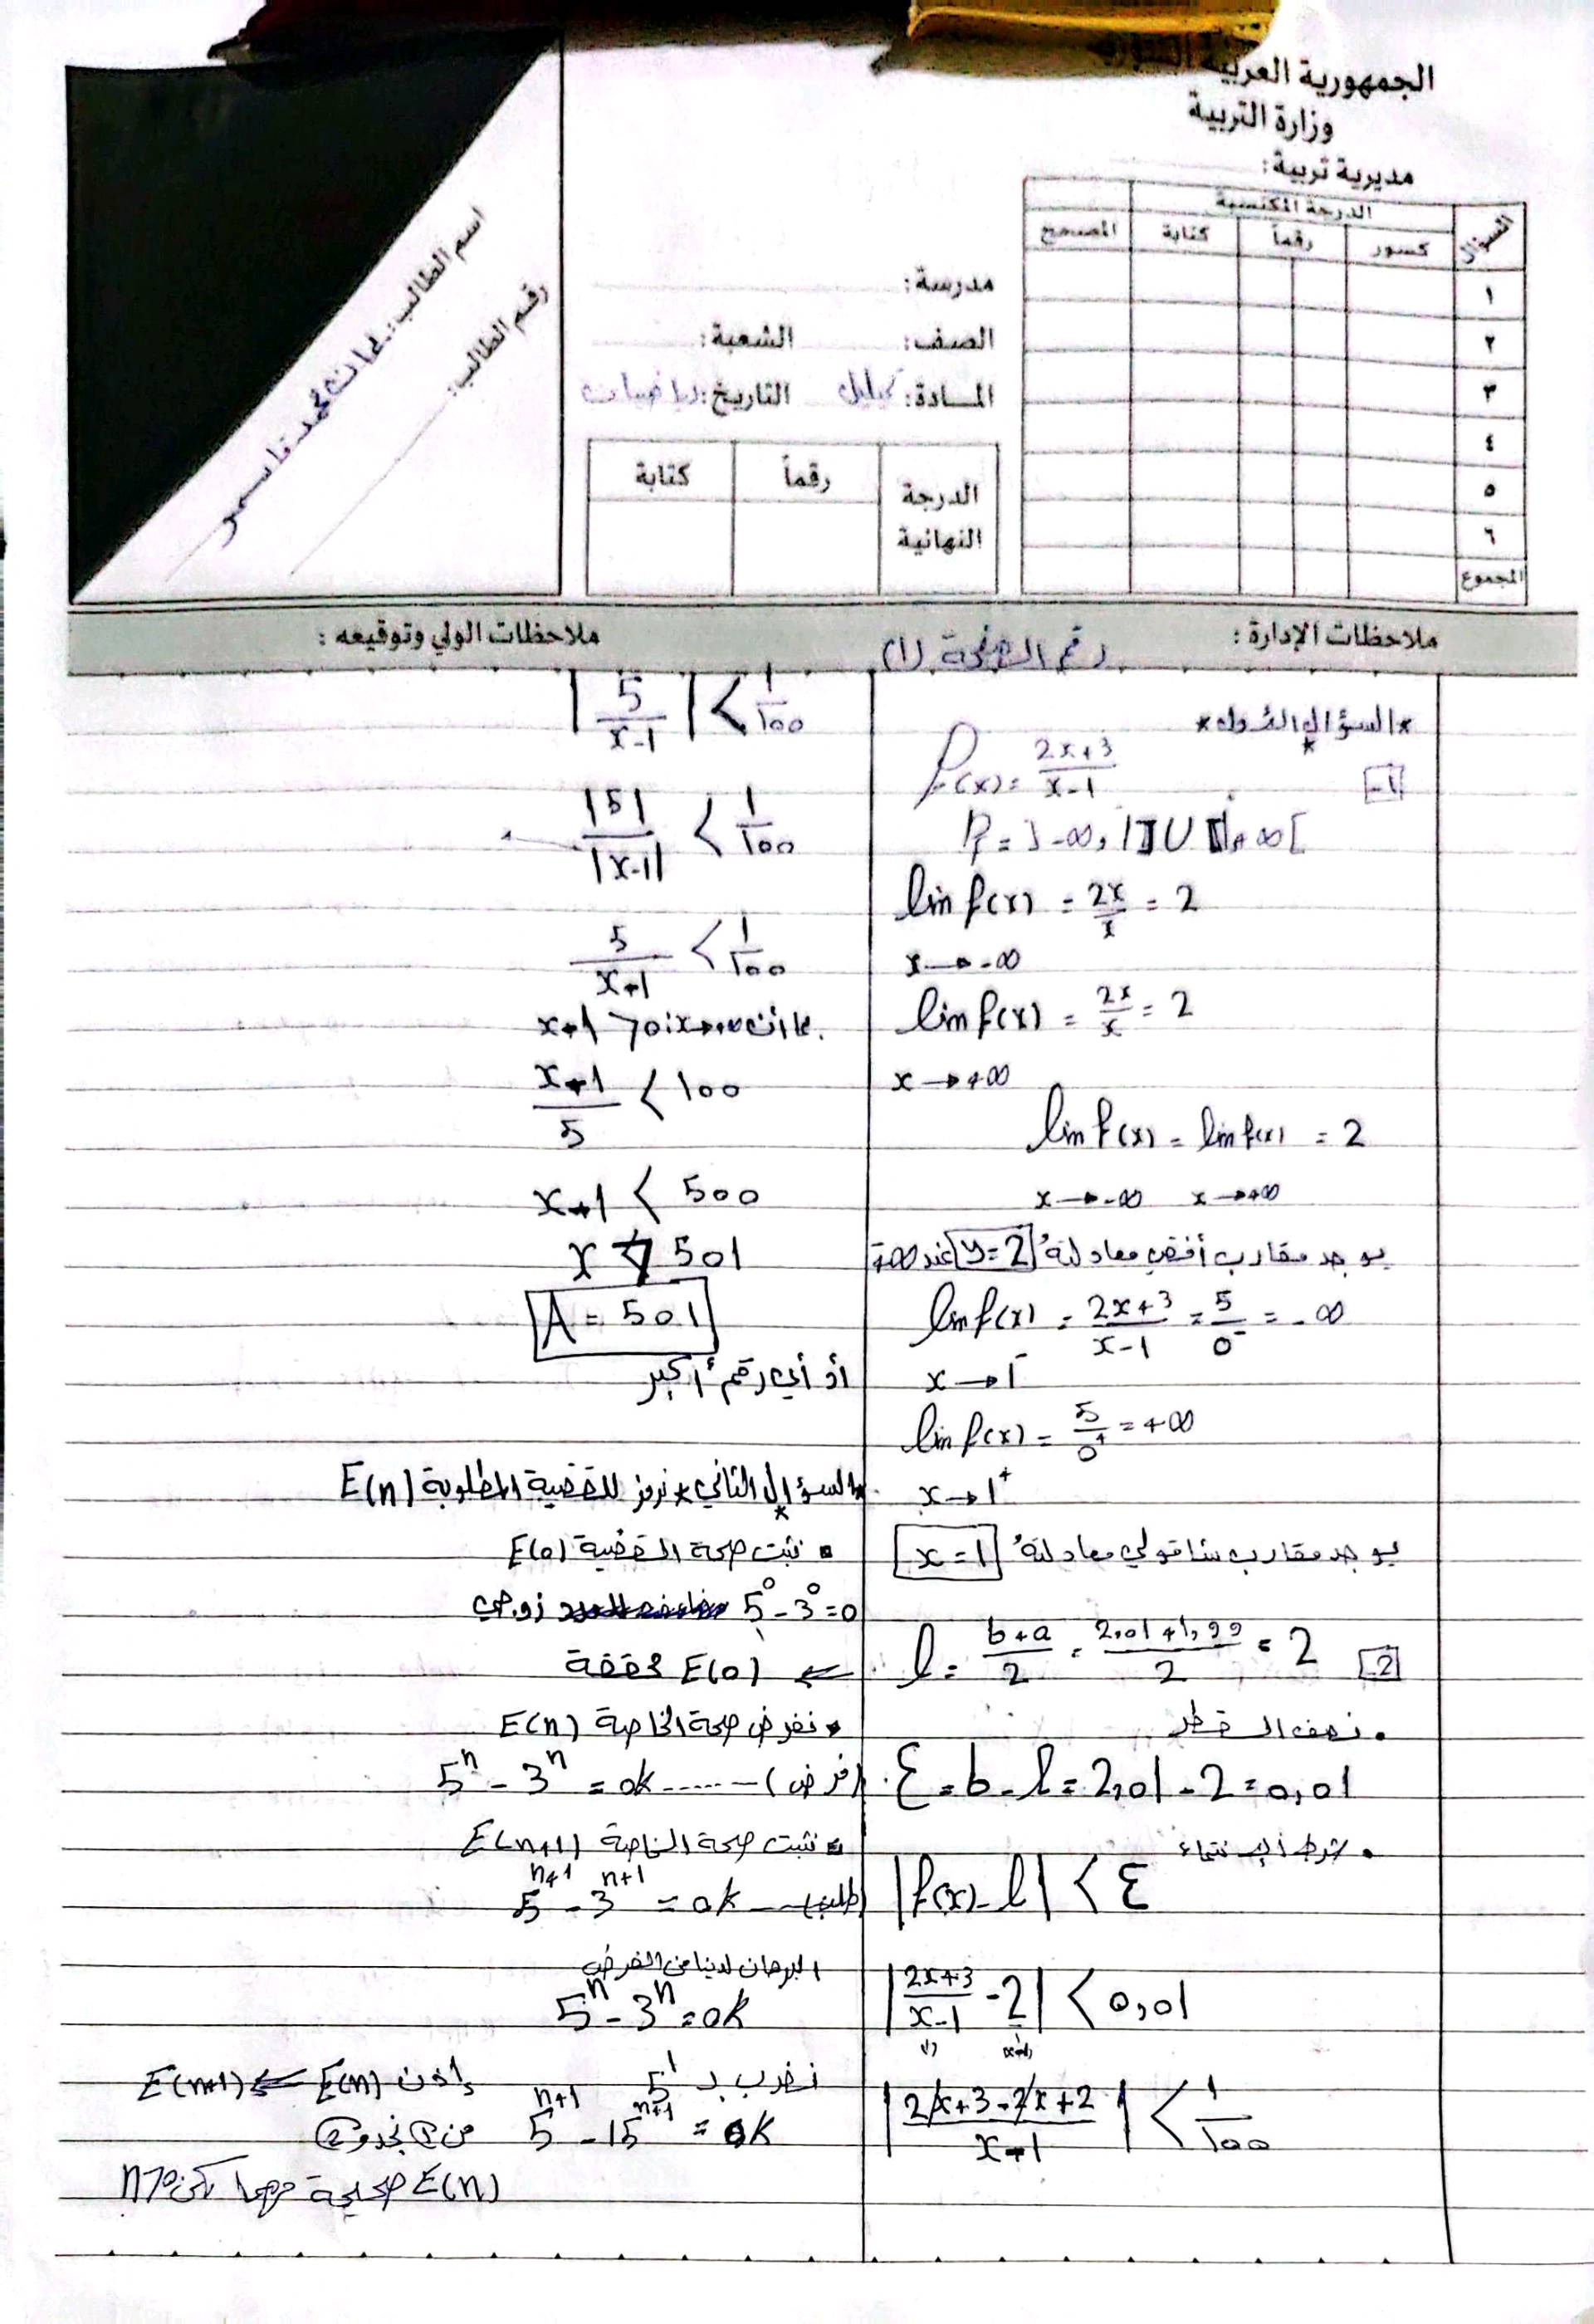 الجمهورية العربية السورية
وزارة التربية
مديرية تربية:
السؤال
الدرجة المكتسبة
المصحح
كسور
رقماً
كتابة
١
٢
٣
٤
٥
٦
المجموع
مدرسة:
الصف:
الشعبة:
المادة: تحليل
التاريخ: رياضيات
الدرجة النهائية
رقماً
كتابة
اسم الطالب:
رقم الطالب:
ملاحظات الإدارة:
رقم الصفحة (1)
ملاحظات الولي وتوقيعه:
*السؤال الأول*
1-
f(x) = 2x+3 / x-1
D = ]-∞, 1[ U ]1, +∞[
lim f(x) = 2x/x = 2
x → -∞
lim f(x) = 2x/x = 2
x → +∞
lim f(x) = lim f(x) = 2
x → -∞ x → +∞
يوجد مقارب أفقي معادلته y=2 عند ∓∞
lim f(x) = 2x+3 / x-1 = 5/0⁻ = -∞
x → 1⁻
lim f(x) = 5/0⁺ = +∞
x → 1⁺
يوجد مقارب شاقولي معادلته x=1
2-
l = b+a / 2 = 2,01+1,99 / 2 = 2
• نصف القطر
ε = b - l = 2,01 - 2 = 0,01
• شرط الانتماء
|f(x) - l| < ε
|2x+3 / x-1 - 2| < 0,01
|2x+3-2x+2 / x-1| < 1/100
|5 / x-1| < 1/100
|5| / |x-1| < 1/100
5 / x-1 < 1/100
بما أن x→+∞ : x-1 > 0
x-1 / 5 < 100
x-1 < 500
x > 501
A = 501
أو أي رقم أكبر
*السؤال الثاني* نرمز للقضية المطلوبة E(n)
• نثبت صحة القضية E(0)
5⁰ - 3⁰ = 0 زوجي
⇐ E(0) محققة
• نفرض صحة الخاصة E(n)
5ⁿ - 3ⁿ = ok ...... (فرض)
• نثبت صحة الخاصة E(n+1)
5ⁿ⁺¹ - 3ⁿ⁺¹ = ok (طلب)
البرهان لدينا من الفرض
5ⁿ - 3ⁿ = ok
نضرب بـ 5¹
5ⁿ⁺¹ - 15ⁿ⁺¹ = ok
إذن E(n) ⇒ E(n+1)
من 1 نجد و 2
E(n) صحيحة مهما تكن n>0